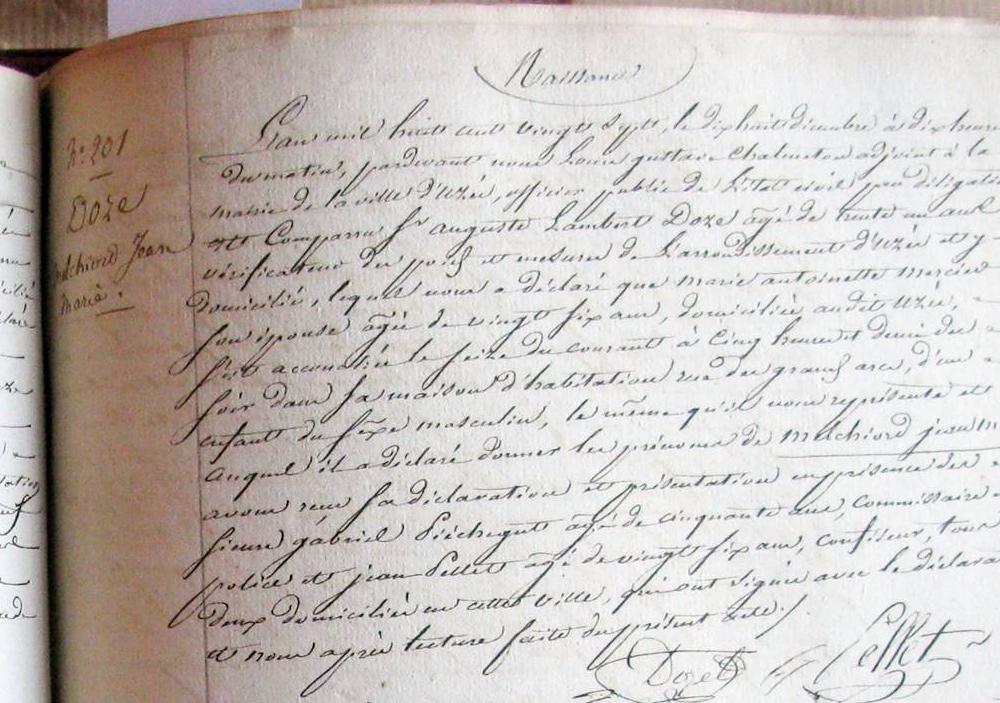 Naissance
N.° 201
Doze
Melchiord Jean
Marie.
L'an mil huit cent vingt sept, le dix huit décembre à dix heures
du matin, pardevant nous Louis gustave Chalmeton adjoint à la
mairie de la ville d'Uzès, officier public de l'état civil par déligati
est Comparu Sr auguste Lambert Doze âgé de trente un ans
vérificateur des poids et mesures de l'arrondissement d'Uzès et y
domicilié, lequel nous a déclaré que marie antoinette mercier
son épouse âgée de vingt six ans, domiciliée audit Uzès,
s'est accouchée le seize du courant à Cinq heures et demi du
soir dans sa maison d'habitation rue des grands arcs, d'un
enfant du sèxe masculin, le même qu'il nous représente et
auquel il a déclaré donner les prénoms de melchiord jean m
avons reçu sa déclaration et présentation en présence des
sieurs gabriel Piéchegut âgé de cinquante ans, commissaire
police et jean Pellet âgé de vingt six ans, confiseur, tous
deux domiciliés en cette ville, qui ont signés avec le déclara
et nous après lecture faite du présent acte./.
Doze G Pellet